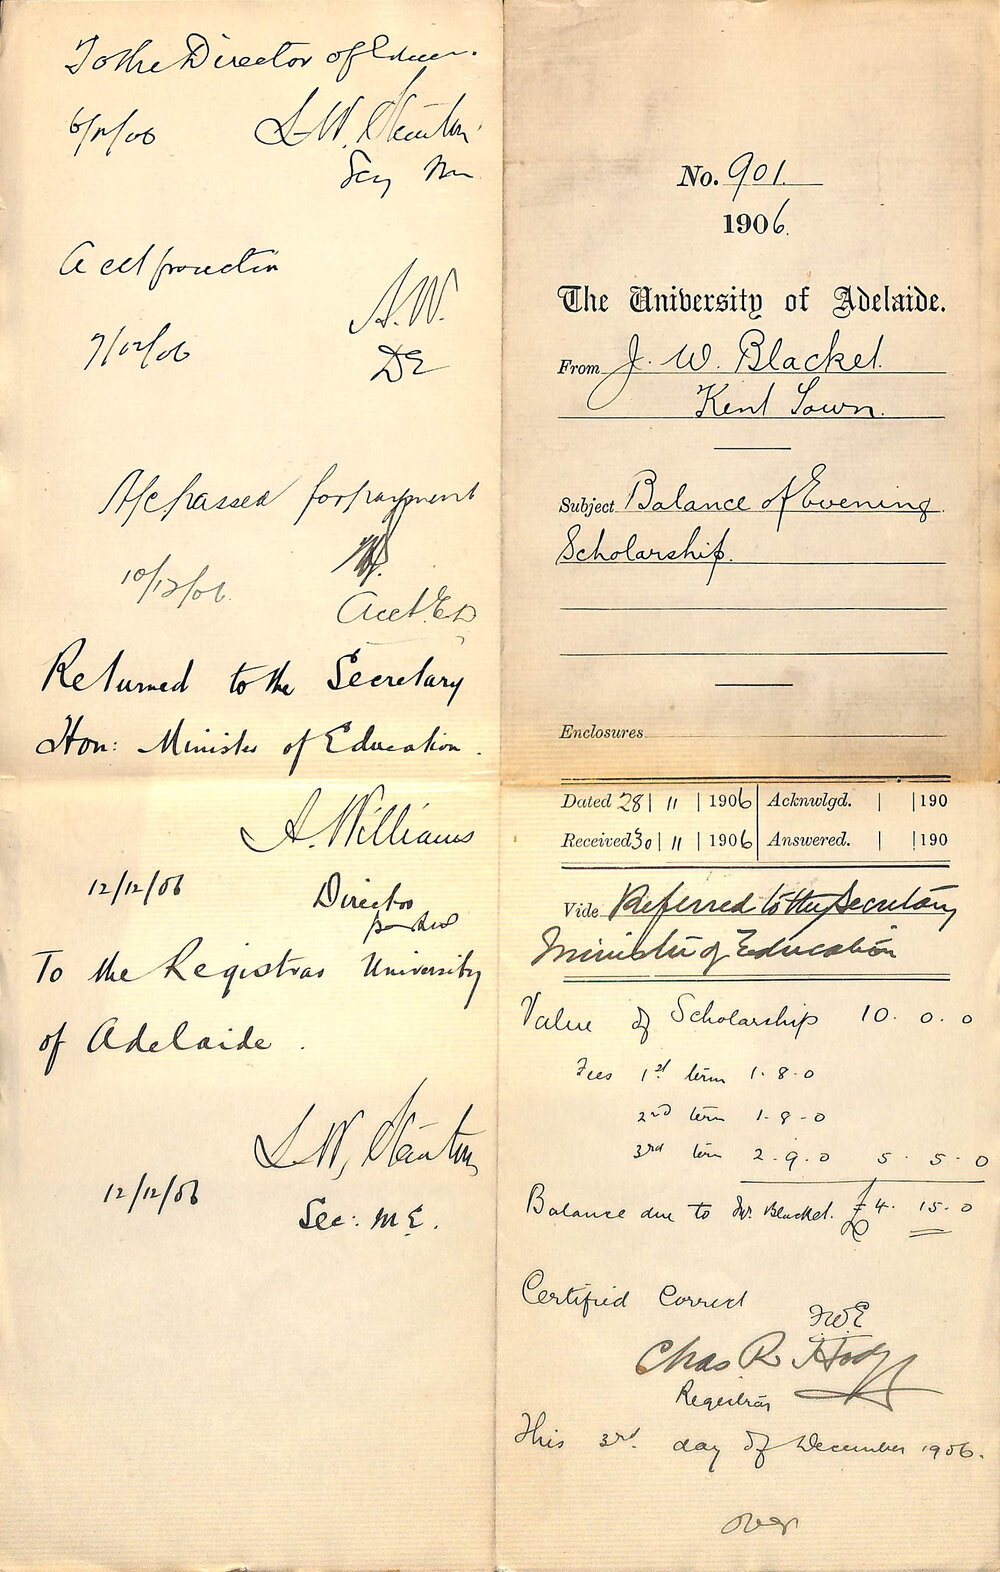 No. 901.
1906.
The University of Adelaide.
From J. W. Blacket.
Kent Town.
Subject Balance of Evening
Scholarship.
Enclosures
Dated 28 | 11 | 1906 Acknwlgd. | | 190
Received 30 | 11 | 1906 Answered. | | 190
Vide Referred to the Secretary
Minister of Education
Value of Scholarship 10. 0. 0
Fees 1st term 1. 8. 0
2nd term 1. 8. 0
3rd term 2. 9. 0 5. 5. 0
Balance due to Mr. Blacket. £4. 15. 0
Certified Correct
FWE
Chas R Hodge
Registrar
This 3rd. day of December 1906.
over
To the Director of Educn.
6/12/06 L. W. Stanton
Secy Min
Acct for action
7/12/06 A.W.
DE
A/c passed for payment
10/12/06
Acct. E D
Returned to the Secretary
Hon: Minister of Education.
A. Williams
12/12/06 Director
To the Registrar University
of Adelaide.
L. W. Stanton
12/12/06 Sec: M E.